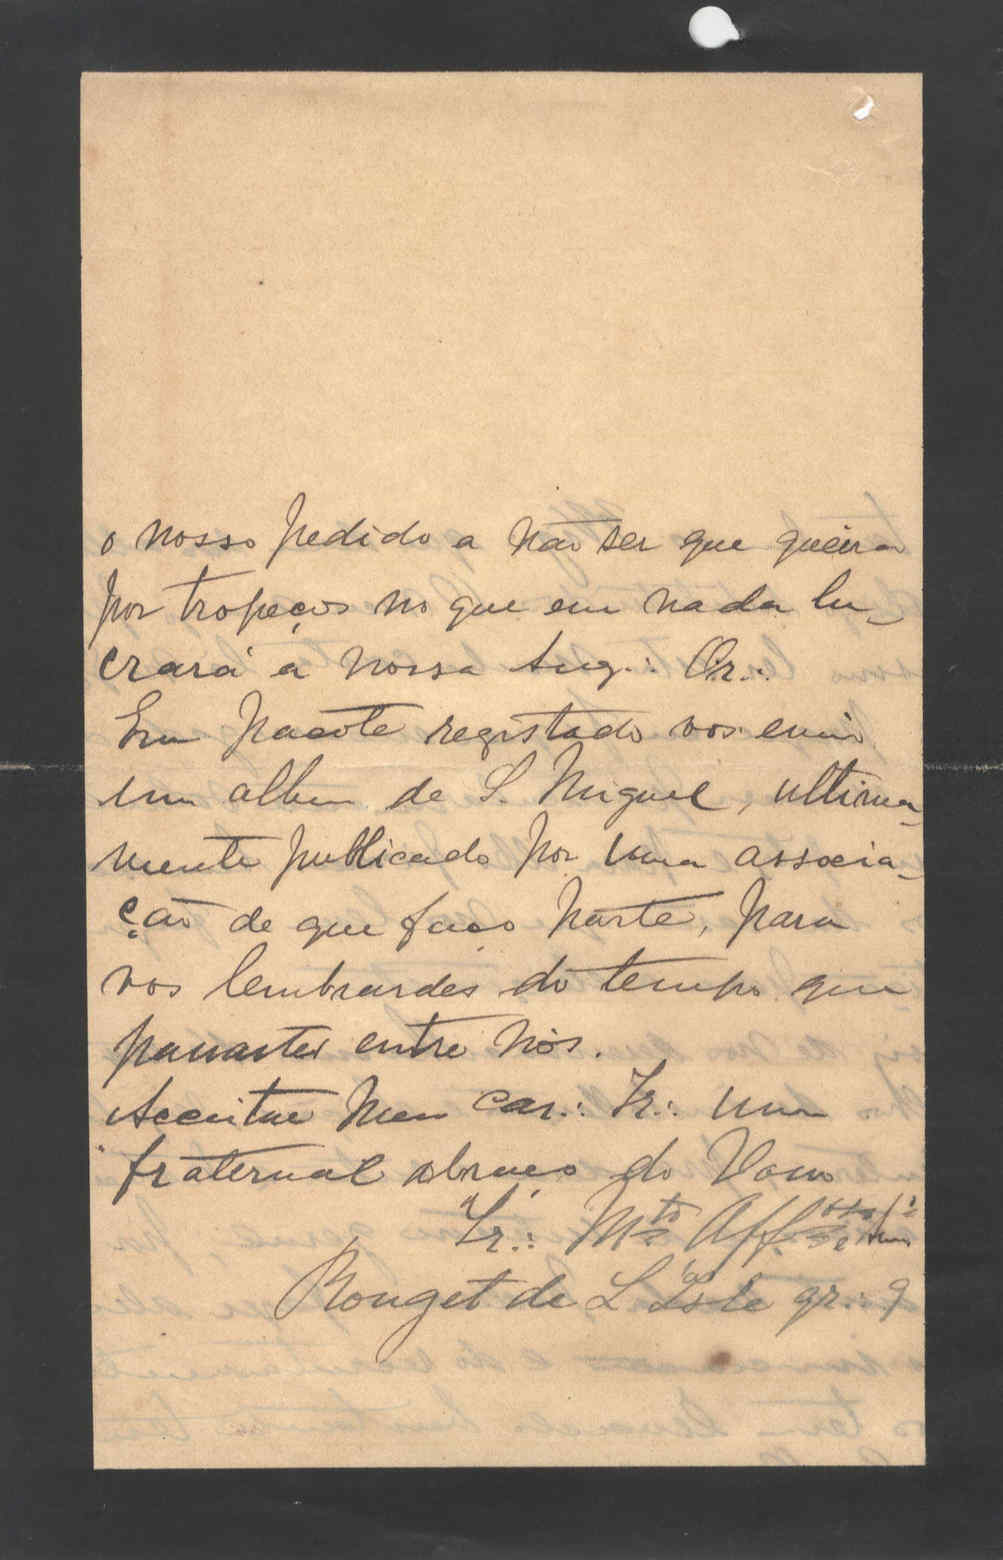 o nosso pedido a não ser que queira
pôr tropeços no que em nada lu_
crará a nossa Aug∴ Or∴
Em pacote registado vos envio
um album de S. Miguel, ultima_
mente publicado por uma associa_
ção de que faço parte, para
vos lembrardes do tempo que
passastes entre nós.
Acceitae meu car∴ Ir∴ um
fraternal abraço do Vosso
Ir∴ Mto Aff.
Rouget de L'Isle gr∴ 9